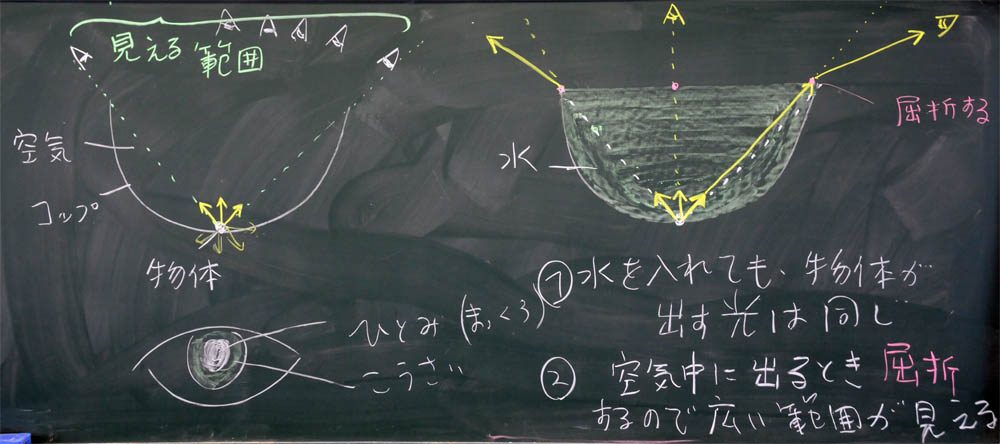 見える範囲
空気
コップ
物体
ひとみ(まっくろ)
こうさい
水
屈折する
① 水を入れても、物体が
出す光は同じ
② 空気中に出るとき屈折
するので広い範囲が見える